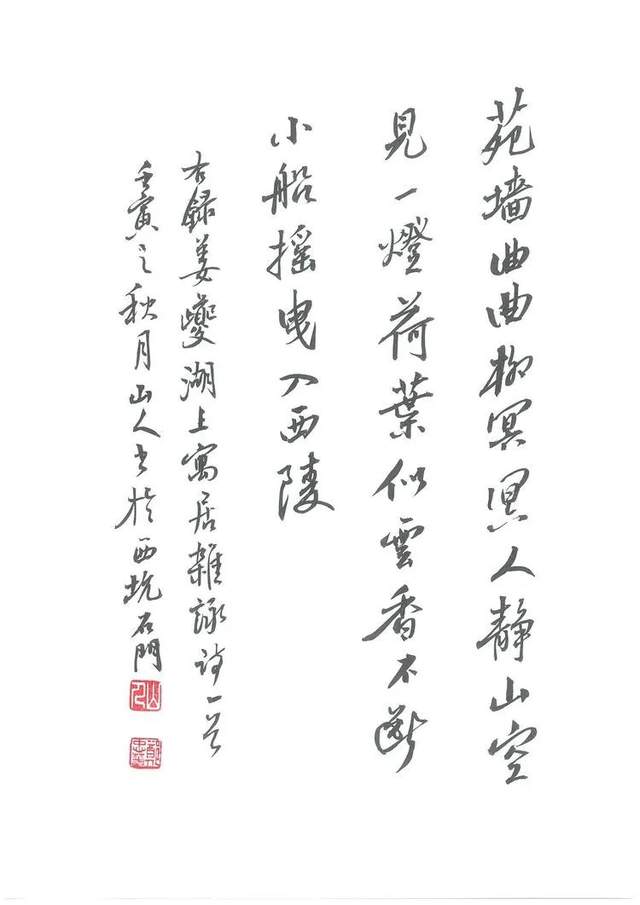 苑墙曲曲柳冥冥人静山空
見一燈荷葉似雲香不斷
小船摇曳入西陵
右録姜夔湖上寓居雜詠詩一首
壬寅之秋月山人書於西坑石門
山人